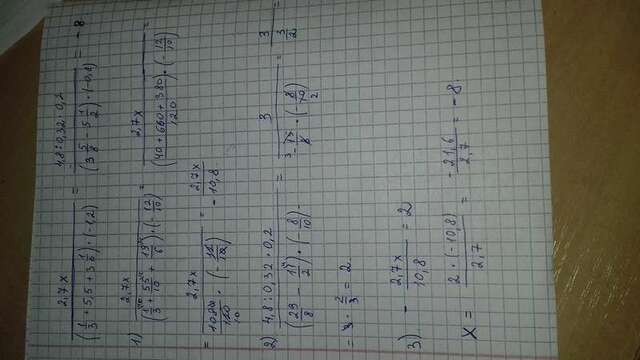 2,7x / ((1/3 + 5,5 + 3 1/6) · (-1,2)) = 4,8 : 0,32 · 0,2 / ((3 5/8 - 5 1/2) · (-0,8)) = -8
1) 2,7x / ((1/3 + 55/10 + 19/6) · (-12/10)) = 2,7x / ((40 + 660 + 380)/120 · (-12/10)) =
= 2,7x / (1080/120 · (-12/10)) = - 2,7x / 10,8
2) 4,8 : 0,32 · 0,2 / ((29/8 - 11/2) · (-8/10)) = 3 / (-15/8 · (-8/10)) = 3 / (3/2) =
= 3 · 2/3 = 2
3) - 2,7x / 10,8 = 2
X = 2 · (-10,8) / 2,7 = -21,6 / 2,7 = -8